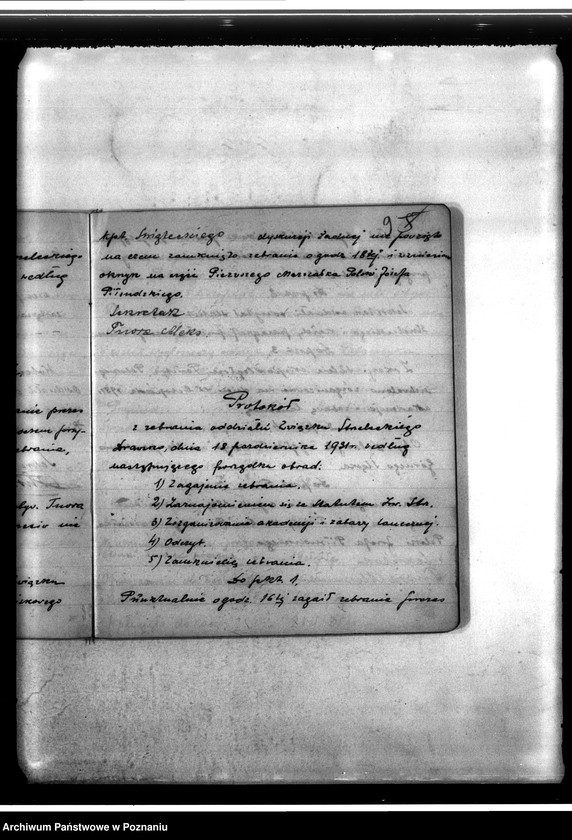 9 8
kpt. Świąteckiego dyskusji żadnej nie podjęto
na czem zamknięto zebranie o godz 18tej i wzniesiono
okrzyk na cześć Pierwszego Marszałka Polski Józefa
Piłsudskiego.
Sekretarz
Twora Aleks.
Protokół
z zebrania oddziału Związku Strzeleckiego
dnia 18 października 1931r. według
następującego porządku obrad:
1) Zagajenie zebrania.
2) Zaznajomieniem się ze Statutem Zw. Strz.
3) Zorganizowanie akademji i zabawy tanecznej.
4) Odczyt.
5) Zamknięcie zebrania.
Do pkt 1.
Punktualnie o godz 16tej zagaił zebranie prezes
rzeleckiego
według
anie prezes
ebrania,
Twora
nie
wiązku
Archiwum Państwowe w Poznaniu